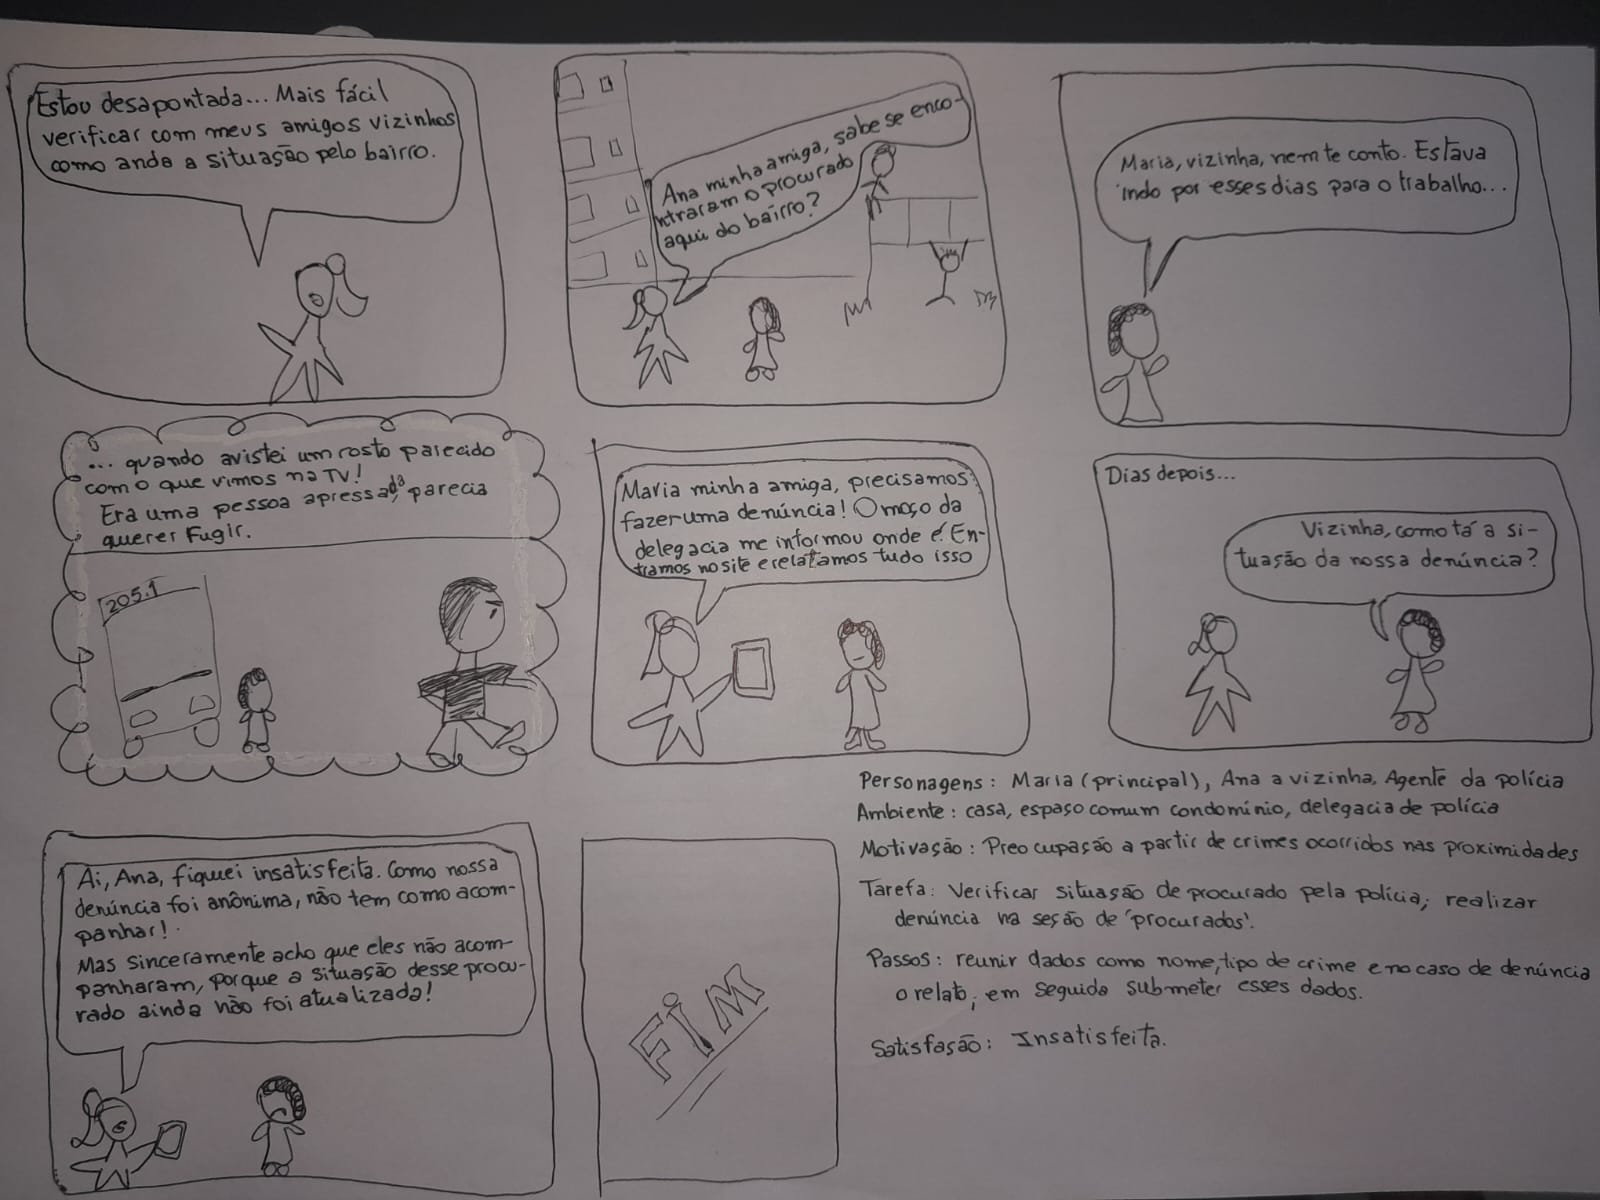 Estou desapontada... Mais fácil
verificar com meus amigos vizinhos
como anda a situasão pelo bairro.
Ana minha amiga, sabe se enco-
ntraram o procurado
aqui do bairro?
Maria, vizinha, nem te conto. Estava
indo por esses dias para o trabalho...
... quando avistei um rosto parecido
com o que vimos na TV!
Era uma pessoa apressada, parecia
querer Fugir.
205.1
Maria minha amiga, precisamos
fazer uma denúncia! O moço da
delegacia me informou onde é. En-
tramos no site e relatamos tudo isso
Dias depois...
Vizinha, como tá a si-
tuasão da nossa denúncia?
Ai, Ana, fiquei insatisfeita. Como nossa
denúncia foi anônima, não tem como acom-
panhar!
Mas sinceramente acho que eles não acom-
panharam, porque a situasão desse procu-
rado ainda não foi atualizada!
FIM
Personagens: Maria (principal), Ana a vizinha, Agente da polícia
Ambiente: casa, espaso comum condomínio, delegacia de polícia
Motivasão: Preocupasão a partir de crimes ocorridos nas proximidades
Tarefa: Verificar situasão de procurado pela polícia; realizar
denúncia na sesão de 'procurados'.
Passos: reunir dados como nome, tipo de crime e no caso de denúncia
o relato, em seguida submeter esses dados.
Satisfasão: Insatisfeita.